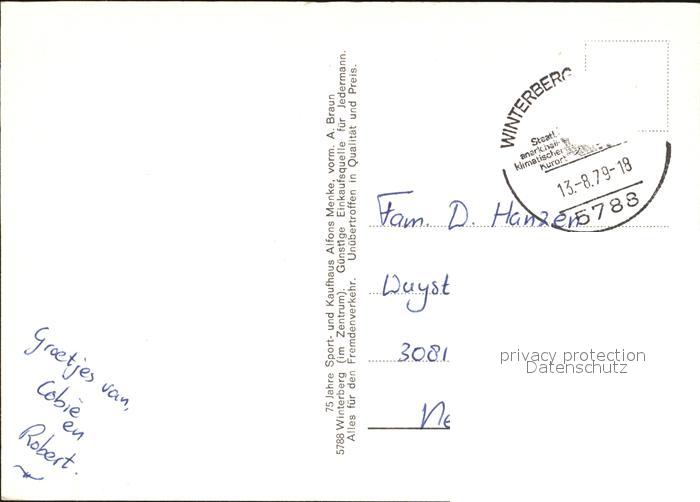 Groetjes van,
Cobie
en
Robert.
75 Jahre Sport- und Kaufhaus Alfons Menke, vorm. A. Braun
5788 Winterberg (im Zentrum). Günstige Einkaufsquelle für Jedermann.
Alles für den Fremdenverkehr. Unübertroffen in Qualität und Preis.
WINTERBERG
Staatl.
klimatischer
Kurort
13.-8.79-18
5788
Fam. D. Hanzen
Duyst
3081
Ne
privacy protection
Datenschutz